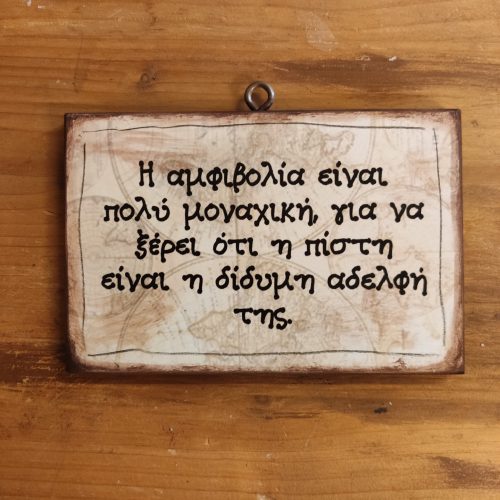 Η αμφιβολία είναι
πολύ μοναχική, για να
ξέρει ότι η πίστη
είναι η δίδυμη αδελφή
της.